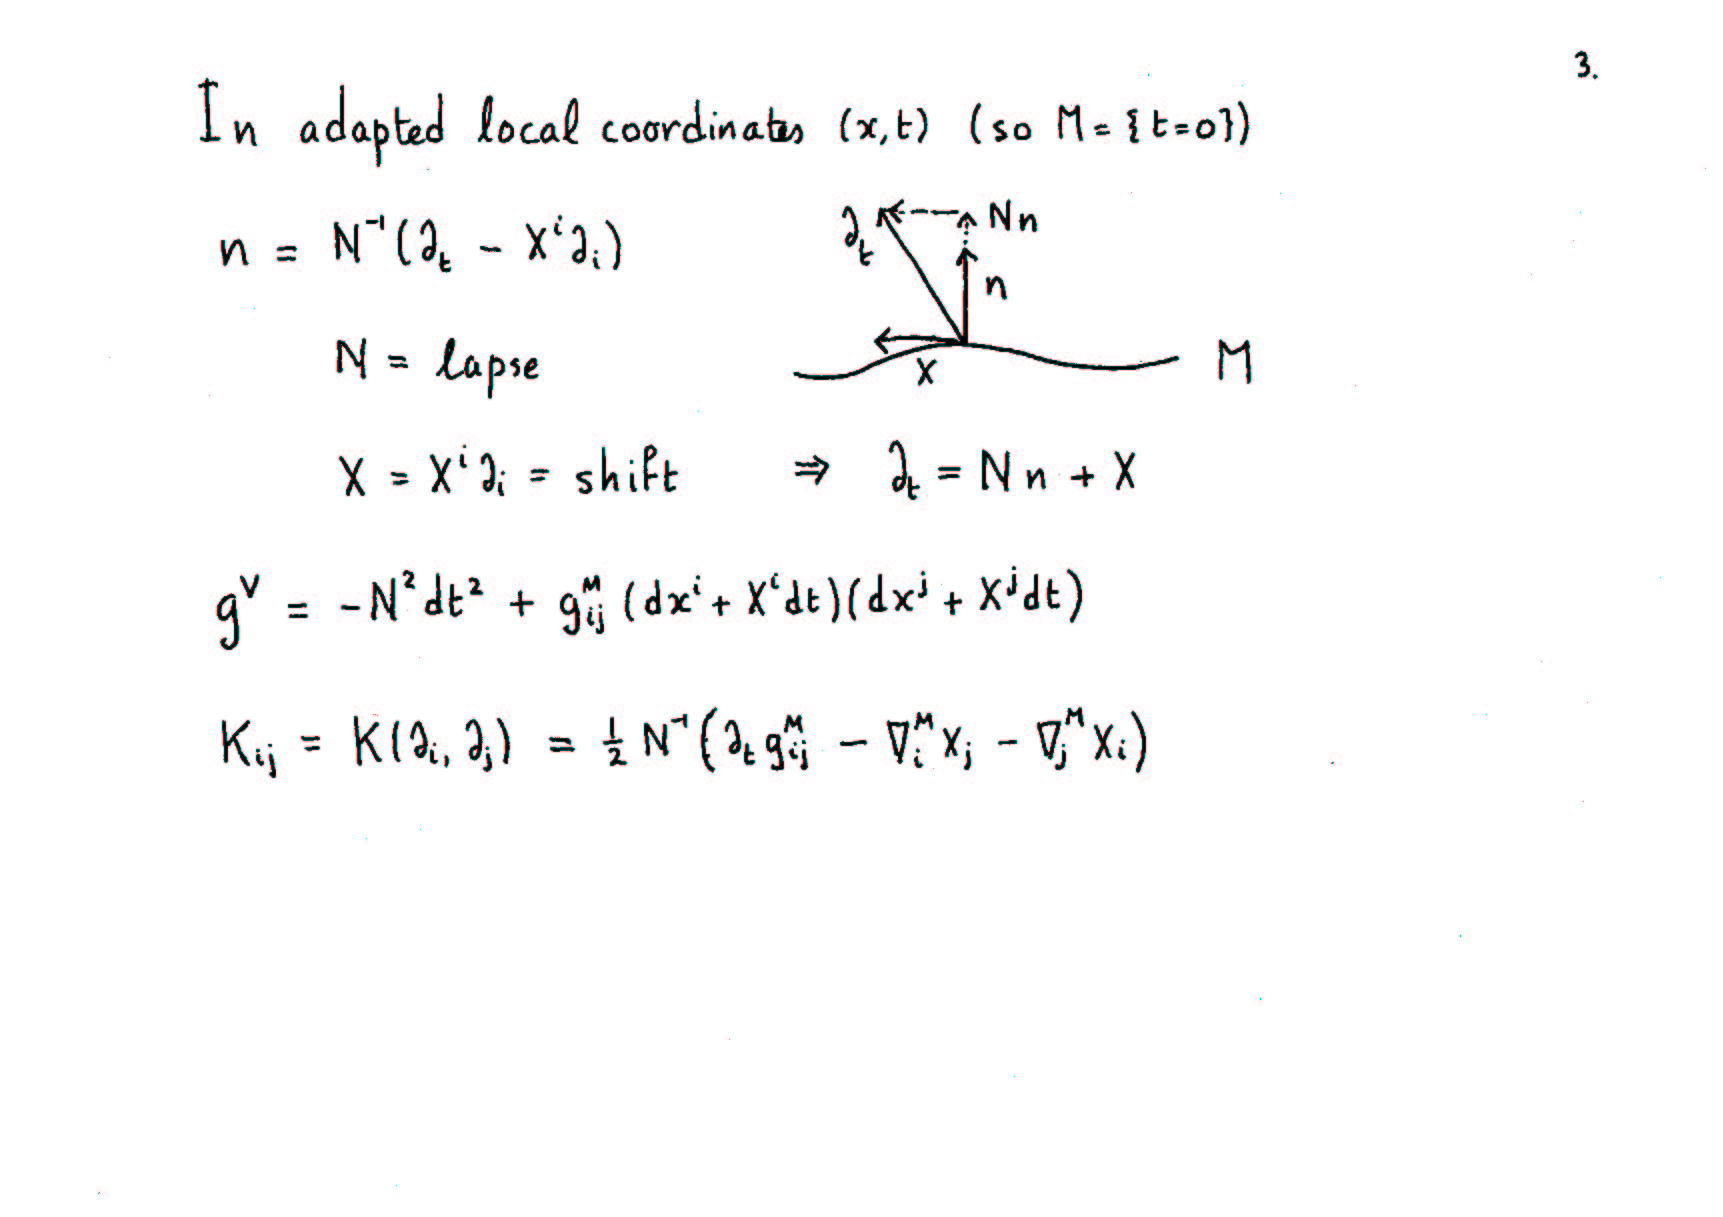 3.
In adapted local coordinates (x,t) (so M = {t=0})
n = N⁻¹(∂ₜ − Xⁱ∂ᵢ)
∂ₜ
Nn
n
X
M
N = lapse
X = Xⁱ∂ᵢ = shift ⇒ ∂ₜ = Nn + X
g^V = −N²dt² + g^M_ij (dxⁱ + Xⁱdt)(dxʲ + Xʲdt)
K_ij = K(∂ᵢ, ∂ⱼ) = ½ N⁻¹(∂ₜ g^M_ij − ∇^M_i Xⱼ − ∇^M_j Xᵢ)